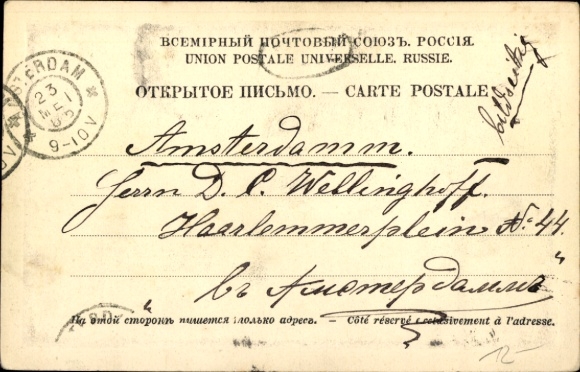 ВСЕМІРНЫЙ ПОЧТОВЫЙ СОЮЗЪ. РОССІЯ.
UNION POSTALE UNIVERSELLE. RUSSIE.
ОТКРЫТОЕ ПИСЬМО. — CARTE POSTALE
AMSTERDAM
23
9-10V
Amsterdamm.
Herrn D. C. Wellinghoff.
Haarlemmerplein № 44.
въ Амстердаммъ
На этой сторонѣ пишется только адресъ. — Côté réservé exclusivement à l'adresse.
12-